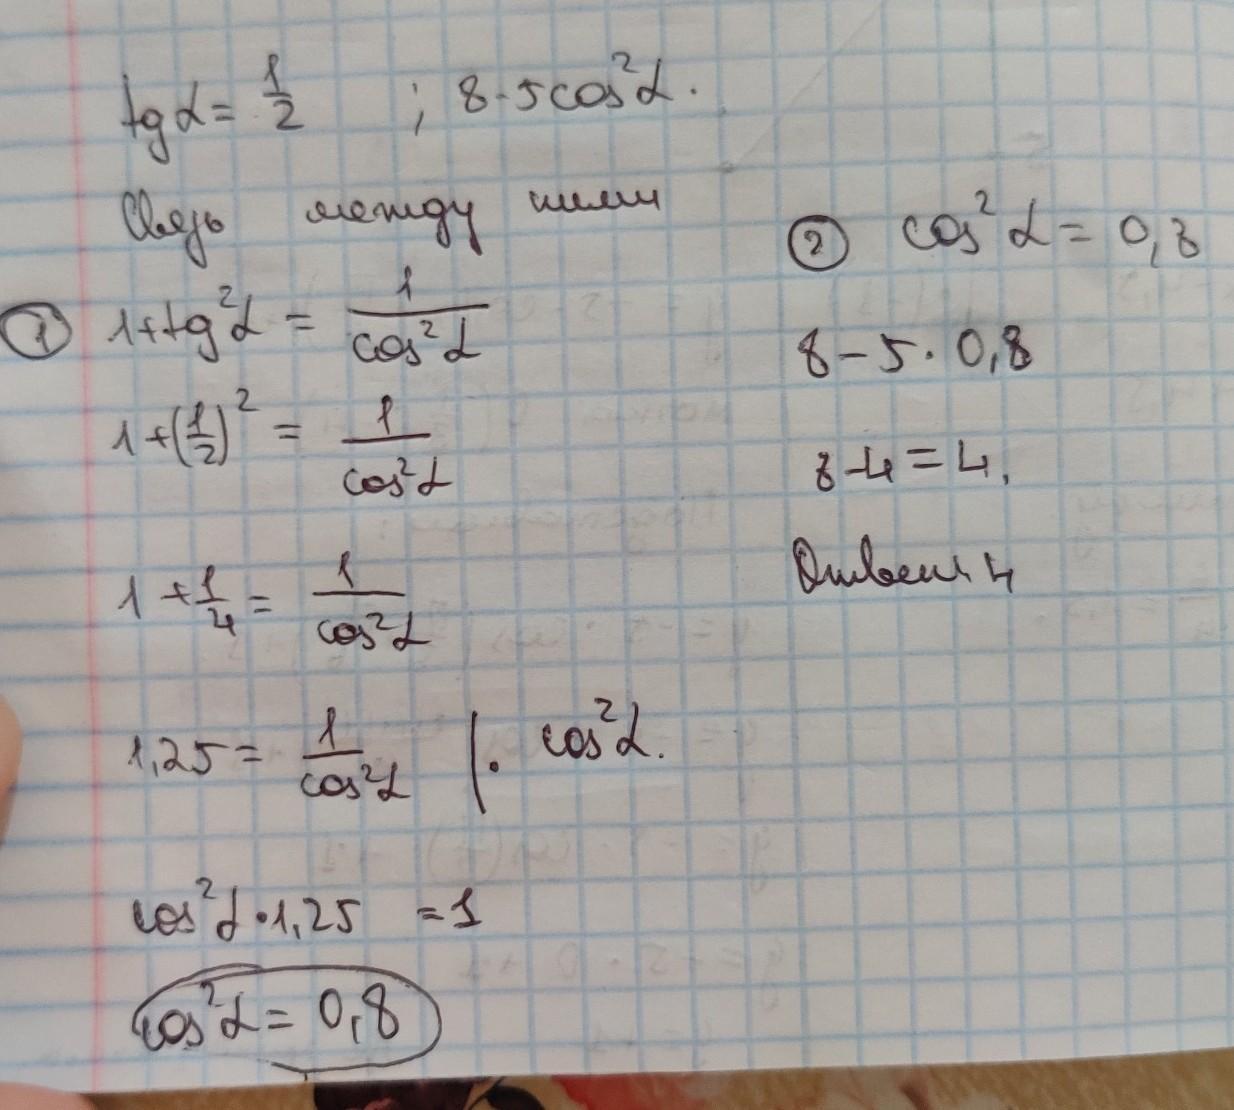 tg α = 1/2 ; 8-5cos²α.
Связь между ними
① 1+tg²α = 1/cos²α
1+(1/2)² = 1/cos²α
1+1/4 = 1/cos²α
1,25 = 1/cos²α |· cos²α.
cos²α·1,25 = 1
cos²α = 0,8
② cos²α = 0,8
8-5·0,8
8-4=4.
Ответ: 4